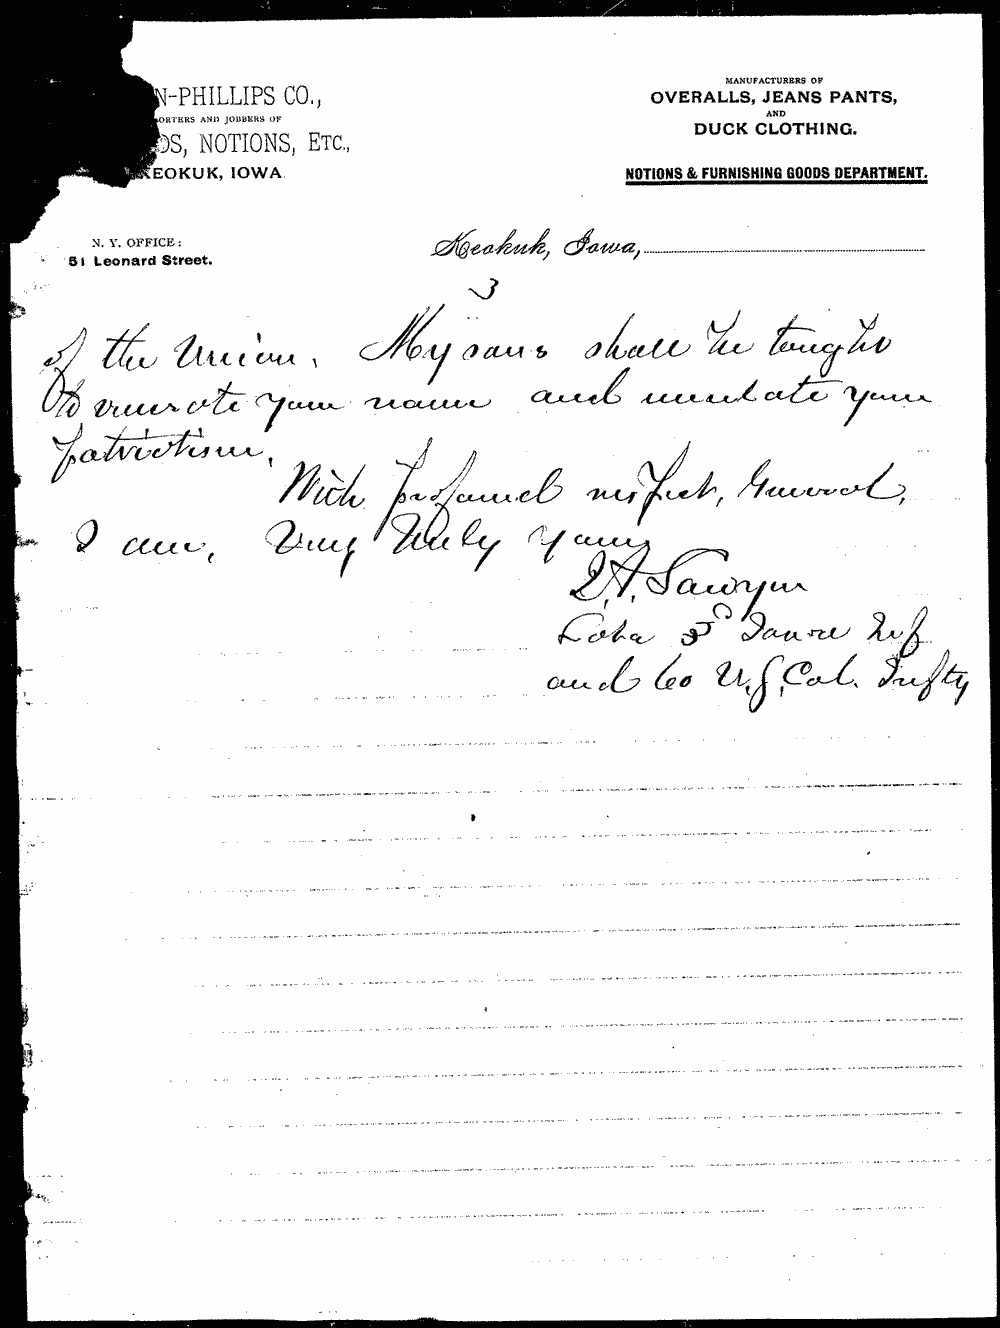 N-PHILLIPS CO.,
ORTERS AND JOBBERS OF
DS, NOTIONS, ETC.,
KEOKUK, IOWA.
MANUFACTURERS OF
OVERALLS, JEANS PANTS,
AND
DUCK CLOTHING.
NOTIONS & FURNISHING GOODS DEPARTMENT.
N. Y. OFFICE:
51 Leonard Street.
Keokuk, Iowa,
3
of the Union. My sons shall be taught
to venerate your name and emulate your
patriotism.
With profound respect, General,
I am, Very truly yours
Sawyer
3d Iowa Inf
and 60 U.S. Col. Infty